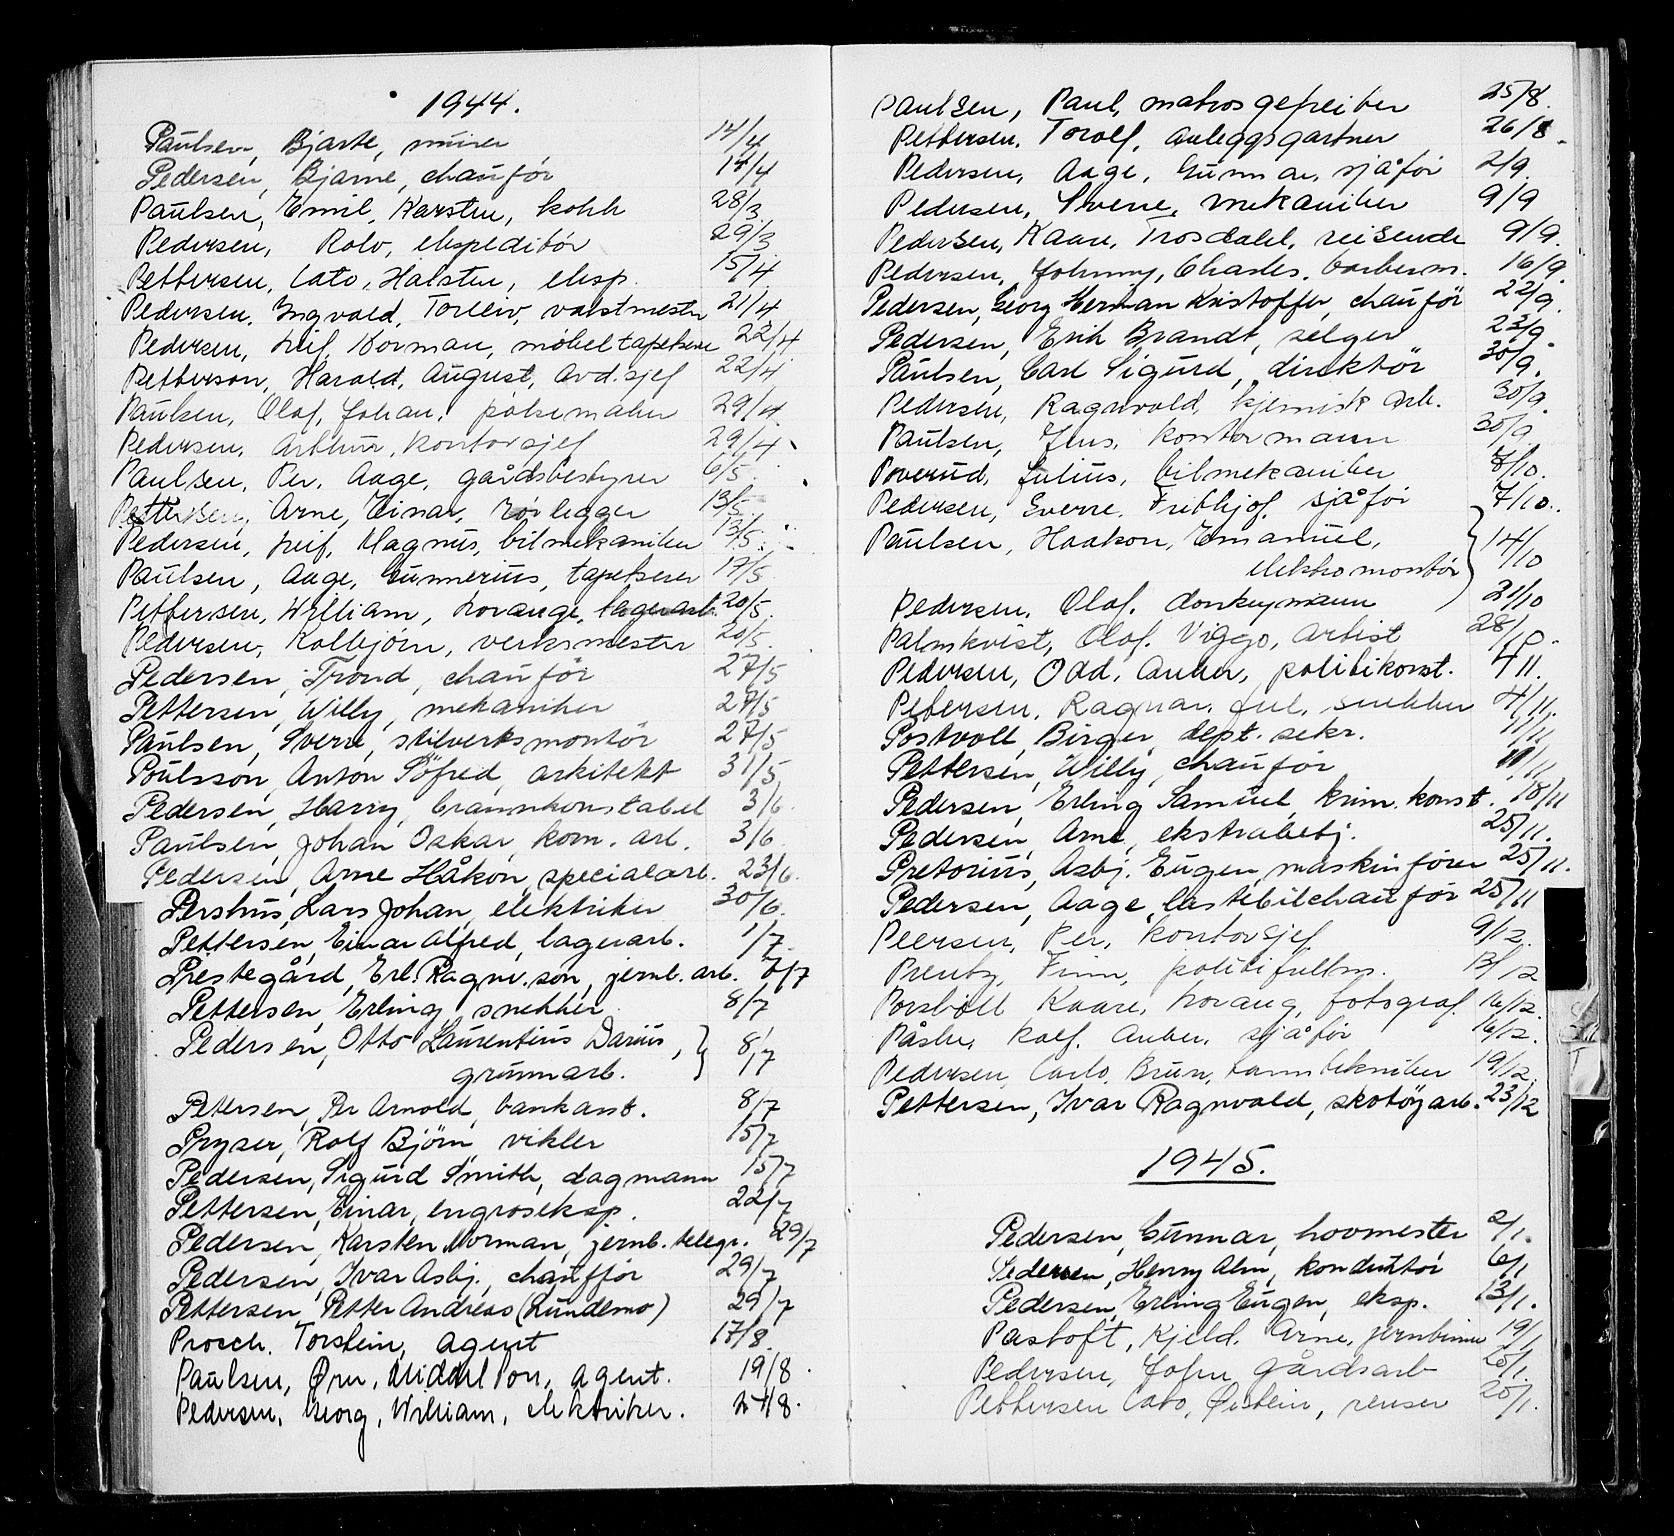 1944.
Paulsen, Bjarte, murer 14/4
Pedersen, Bjarne, chaufför 14/4
Paulsen, Emil, Karsten, kokk 28/3
Pedersen, Rolv, ekspeditör 29/3
Pettersen, Cato, Halsten, eksp. 15/4
Pedersen, Ingvald, Torleiv, vaktmester 21/4
Pedersen, Leif, Norman, möbeltapetserer 22/4
Petterson, Harald, August, Avd.sjef 22/4
Paulsen, Olaf, Johan, pölsemaker 29/4
Pedersen, Arthur, kontorsjef 29/4
Paulsen, Per, Aage, gårdsbestyrer 6/5
Pettersen, Arne, Einar, rörlegger 13/5
Pedersen, Leif, Magnus, bilmekaniker 13/5
Paulsen, Aage, Gunnerius, tapetserer 17/5
Pettersen, William, Lorange, lagerarb. 20/5
Pedersen, Kolbjörn, verksmester 20/5
Pedersen, Trond, chaufför 27/5
Pettersen, Willy, mekaniker 27/5
Paulsen, Sverre, stilverksmontör 27/5
Poulsson, Anton Söfred, arkitekt 31/5
Pedersen, Harry, brannkonstabel 3/6
Paulsen, Johan Oskar, kom. arb. 3/6
Pedersen, Arne Håkon, specialarb. 23/6
Pershus, Lars Johan, elektriker 30/6
Pettersen, Einar Alfred, lagerarb. 1/7
Prestegård, Erl. Ragnv. son, jernb. arb. 6/7
Pettersen, Erling, snekker 8/7
Pedersen, Otto Laurentius Darius, } 8/7
grunnarb.
Petersen, Per Arnold, bankass. 8/7
Pryser, Rolf Björn, vikler 15/7
Pedersen, Sigurd Smith, dagmann 15/7
Pettersen, Einar, engroseksp. 22/7
Pedersen, Karsten Norman, jernb. telegr. 29/7
Pedersen, Ivar Asbj., chaufför 29/7
Pettersen, Petter Andreas (Lundemo) 29/7
Prosch, Torstein, Agent 17/8
Paulsen, Ørn, Middelton, agent. 19/8
Pedersen, Georg, William, elektriker. 24/8
Paulsen, Paul, matrosgefreiter 25/8
Pettersen, Torolf, anleggsgartner 26/8
Pedersen, Aage, Gunnar, sjåför 2/9
Pedersen, Sverre, mekaniker 9/9
Pedersen, Kaare, Trosdahl, reisende 9/9
Pedersen, Johnny, Charles, barberm. 16/9
Pedersen, Georg Herman Kristoffer, chaufför 22/9
Pedersen, Erik Brandt, selger 23/9
Paulsen, Carl Sigurd, direktör 30/9
Pedersen, Ragnvald, kjemisk arb. 30/9
Paulsen, Jens, kontormann 30/9
Poverud, Julius, bilmekaniker 7/10
Pedersen, Sverre, Fritkjof, sjåför 7/10
Paulsen, Haakon, Emanuel, } 14/10
elektromontör
Pedersen, Olaf, donkeymann 21/10
Palmkvist, Olaf, Viggo, Artist 28/10
Pedersen, Odd, Anker, politikonst. 4 11.
Petersen, Ragnar, Jul, snekker 4/11
Postvoll, Birger, dept. sekr. 11/11
Pettersen, Willy, chaufför 11/11
Pedersen, Erling Samuel, krim. konst. 18/11
Pedersen, Arne, ekstrabetj. 25/11
Pretorius, Asbj. Eugen, maskinförer 25/11
Pedersen, Aage, lastebilchaufför 25/11
Peersen, Per, kontorsjef 9/12
Prentz, Finn, politifullm. 13/12
Porsböll Kaare, Lorang, fotograf 16/12
Påske, Rolf, Anker, sjåför 16/12
Pedersen, Carlo, Brun, tanntekniker 19/12
Pettersen, Ivar Ragnvald, skotöyarb. 23/12
1945.
Pedersen, Gunnar, hovmester 2/1
Pedersen, Henry Alm, konduktör 6/1
Pedersen, Erling Eugen, eksp. 13/1
Pastoft, Kjeld, Arne, jernbinder 19/1
Pedersen, John gårdsarb 20/1
Pettersen Cato, Øistein, renser 20/1